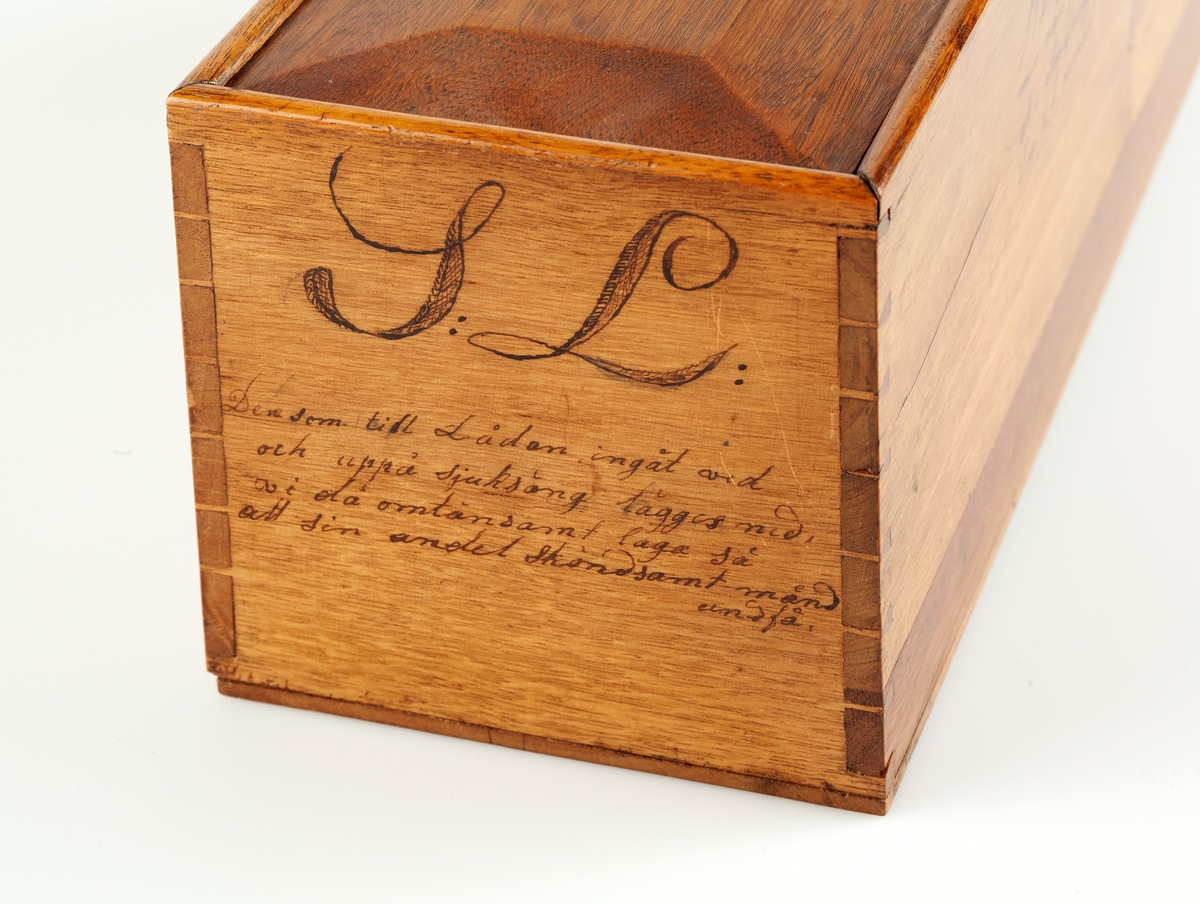 S: L:
Den som till Lådan ingåt vid
och uppå sjuksäng lägges ned,
vi då omtänsamt laga så
att sin andel skåndsamt månd
undfå.